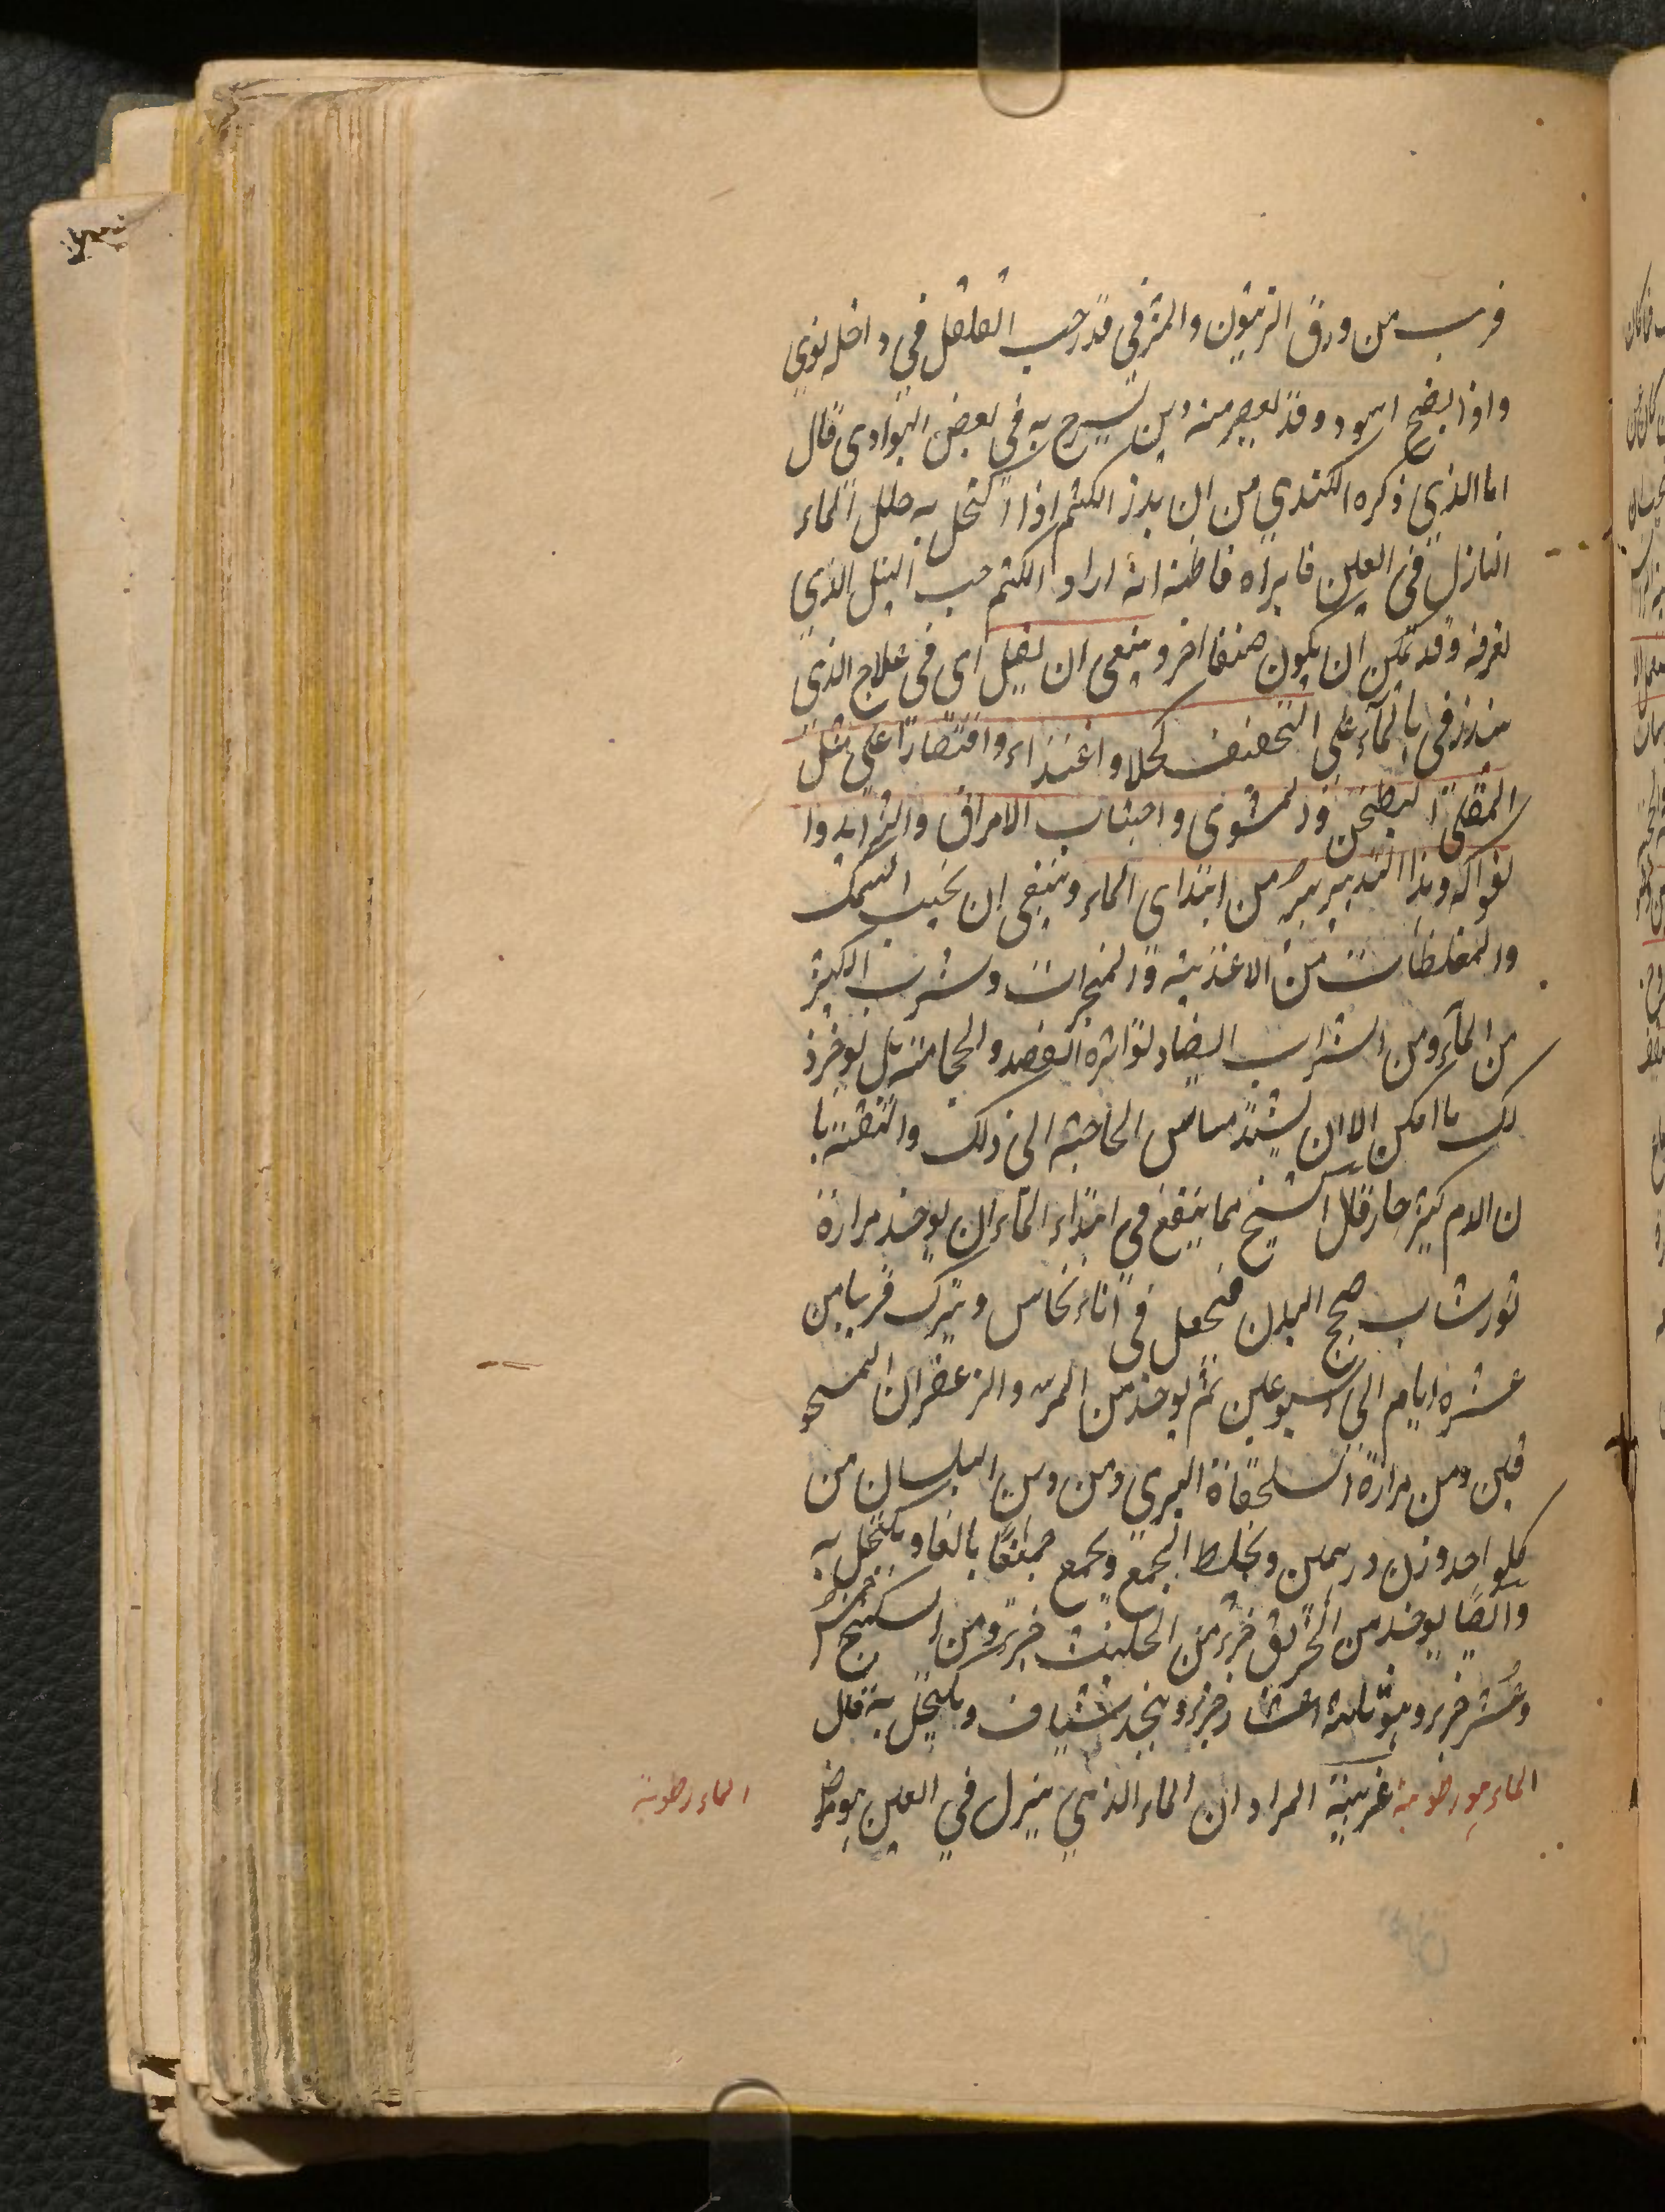 قرب من ورق الزيتون والثمر في قدر حب الفلفل في داخله نوى
واذا نضج اسود وقد يعصر منه دهن يسرج به في بعض البوادي قال
اما الذي ذكره الكندي من ان بذر الكتم اذا اكتحل به حلل الماء
النازل في العين فابراه فاظنه انه اراد الكتم حب النيل الذي
نعرفه وقد يمكن ان يكون صنفا اخر وينبغي ان يقبل اى في علاج الذي
ينذر في بالماء على التخفيف كحلا واغتذاء واقتصارا على مثل
المقلى المطجن والمشوى واجتناب الامراق والثرايد وا
لفواكه وهذا التدبير يبر من ابتداى الماء وينبغي ان يجتنب السمك
والمغلظات من الاغذية والمبخرات وشرب الكثير
من الماء ومن الشراب ايضاد لتواتره الفصد والحجامة بل يوخر ذ
لك ما امكن الا ان يشتد مساس الحاجة الى ذلك والثقة با
ن الدم كثير حار قال الشيخ مما ينتفع في ابتداء الماء ان يوخذ مرارة
ثور شاب صحيح البدن فيجعل في اناء نحاس ويترك قريبا من
عشره ايام الى اسبوعين ثم يوخذ من المر والزعفران المسحو
قين ومن مرارة السلحفاة البرى ومن دهن البلسان من
كلواحد وزن درهمين ويخلط الجمع ويجمع جمعًا بالغا ويكتحل به
وايضًا يوخذ من الخربق جزء ومن الحلتيت جزء ومن السكبينج خمس
وعُشر جزء وهو ثلثة اعشار جزء ويتخذ شياف ويكتحل به قال
الماء هو رطوبة غريبة المراد ان الماء الذي ينزل في العين هو رط
الماء رطوبة